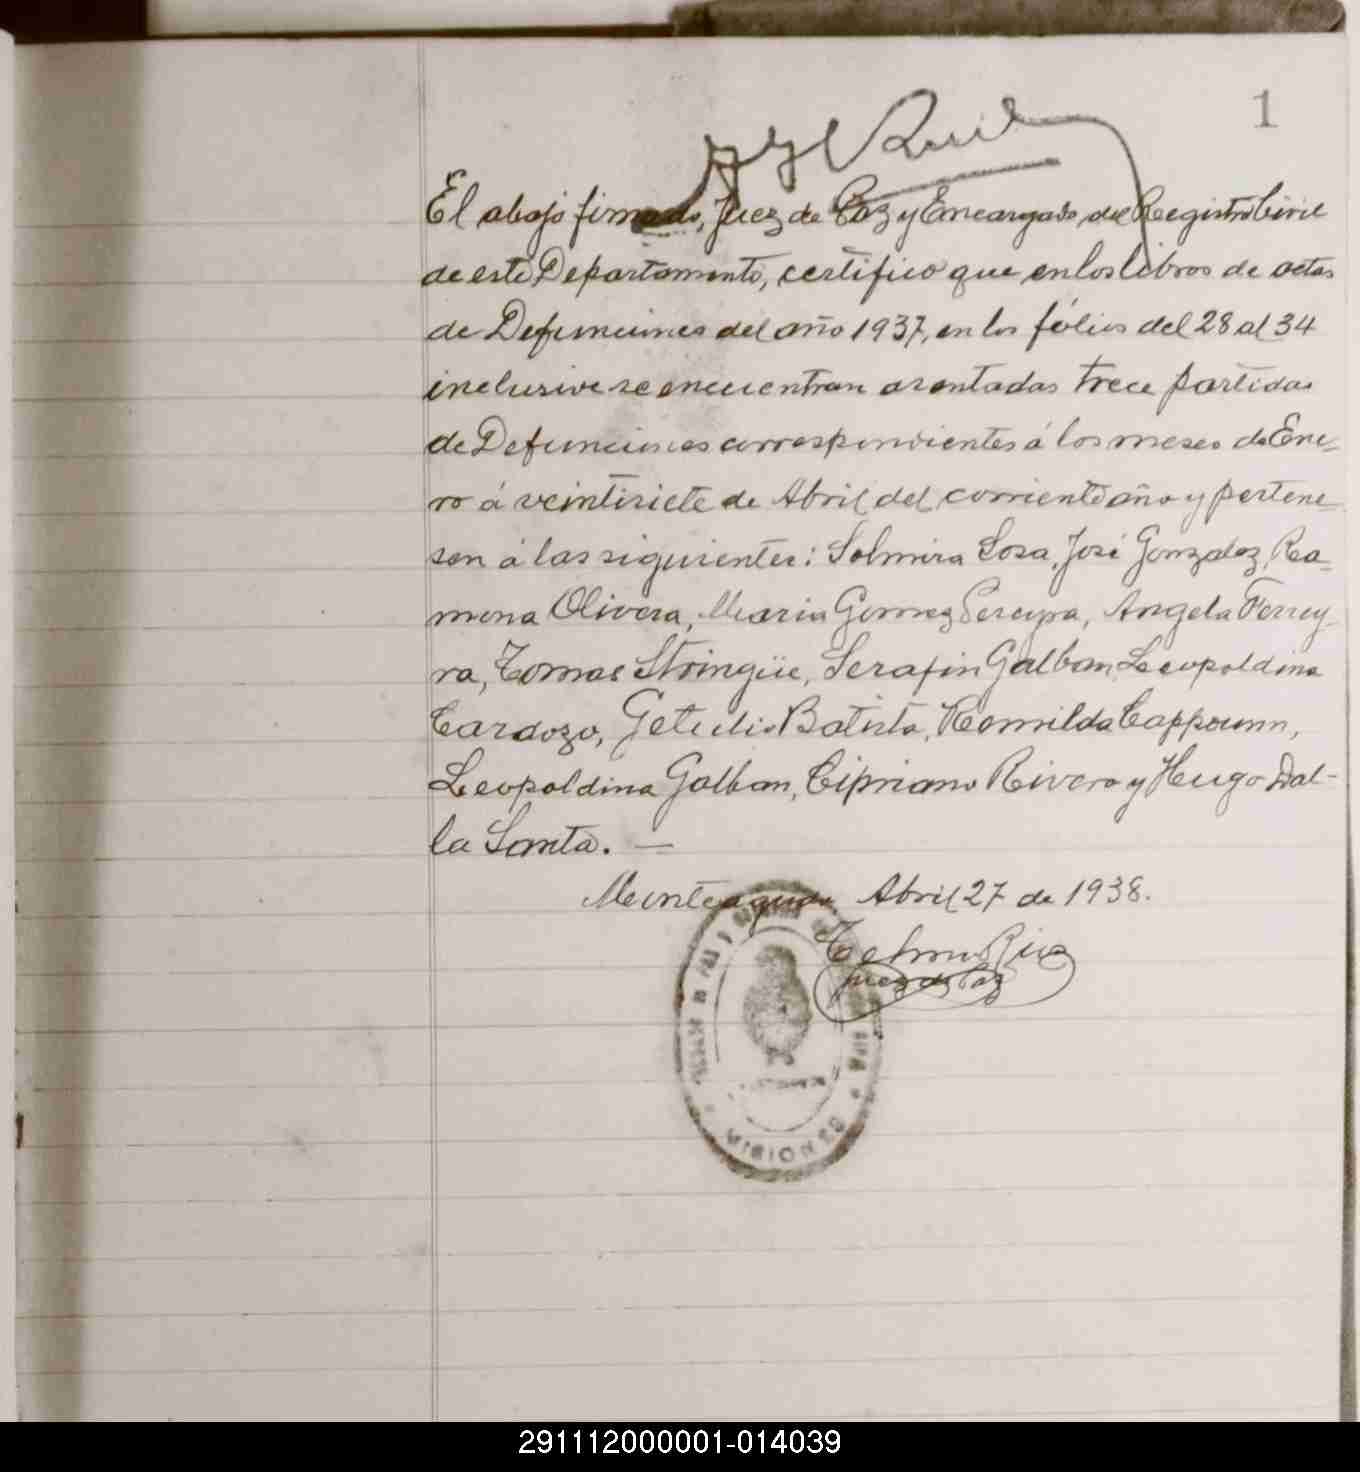 1
El abajo firmado, Juez de Paz y Encargado del Registro Civil
de este Departamento, certifico que en los libros de actas
de Defunciones del año 1937, en los fólios del 28 al 34
inclusive se encuentran asentadas trece partidas
de Defunciones correspondientes á los meses de Ene-
ro á veintisiete de Abril del corriente año y pertene-
sen á las siguientes: Solmira Sosa, José Gonzalez, Ra-
mona Olivera, Maria Gomez Pereyra, Angela Ferrey-
ra, Tomas Stringüe, Serafin Galban, Leopoldina
Cardozo, Getulio Batista, Romilda Cappounn,
Leopoldina Galban, Cipriano Rivero y Hugo Dal-
la Santa. —
Monteagudo Abril 27 de 1938.
Juez de Paz
MISIONES
291112000001-014039